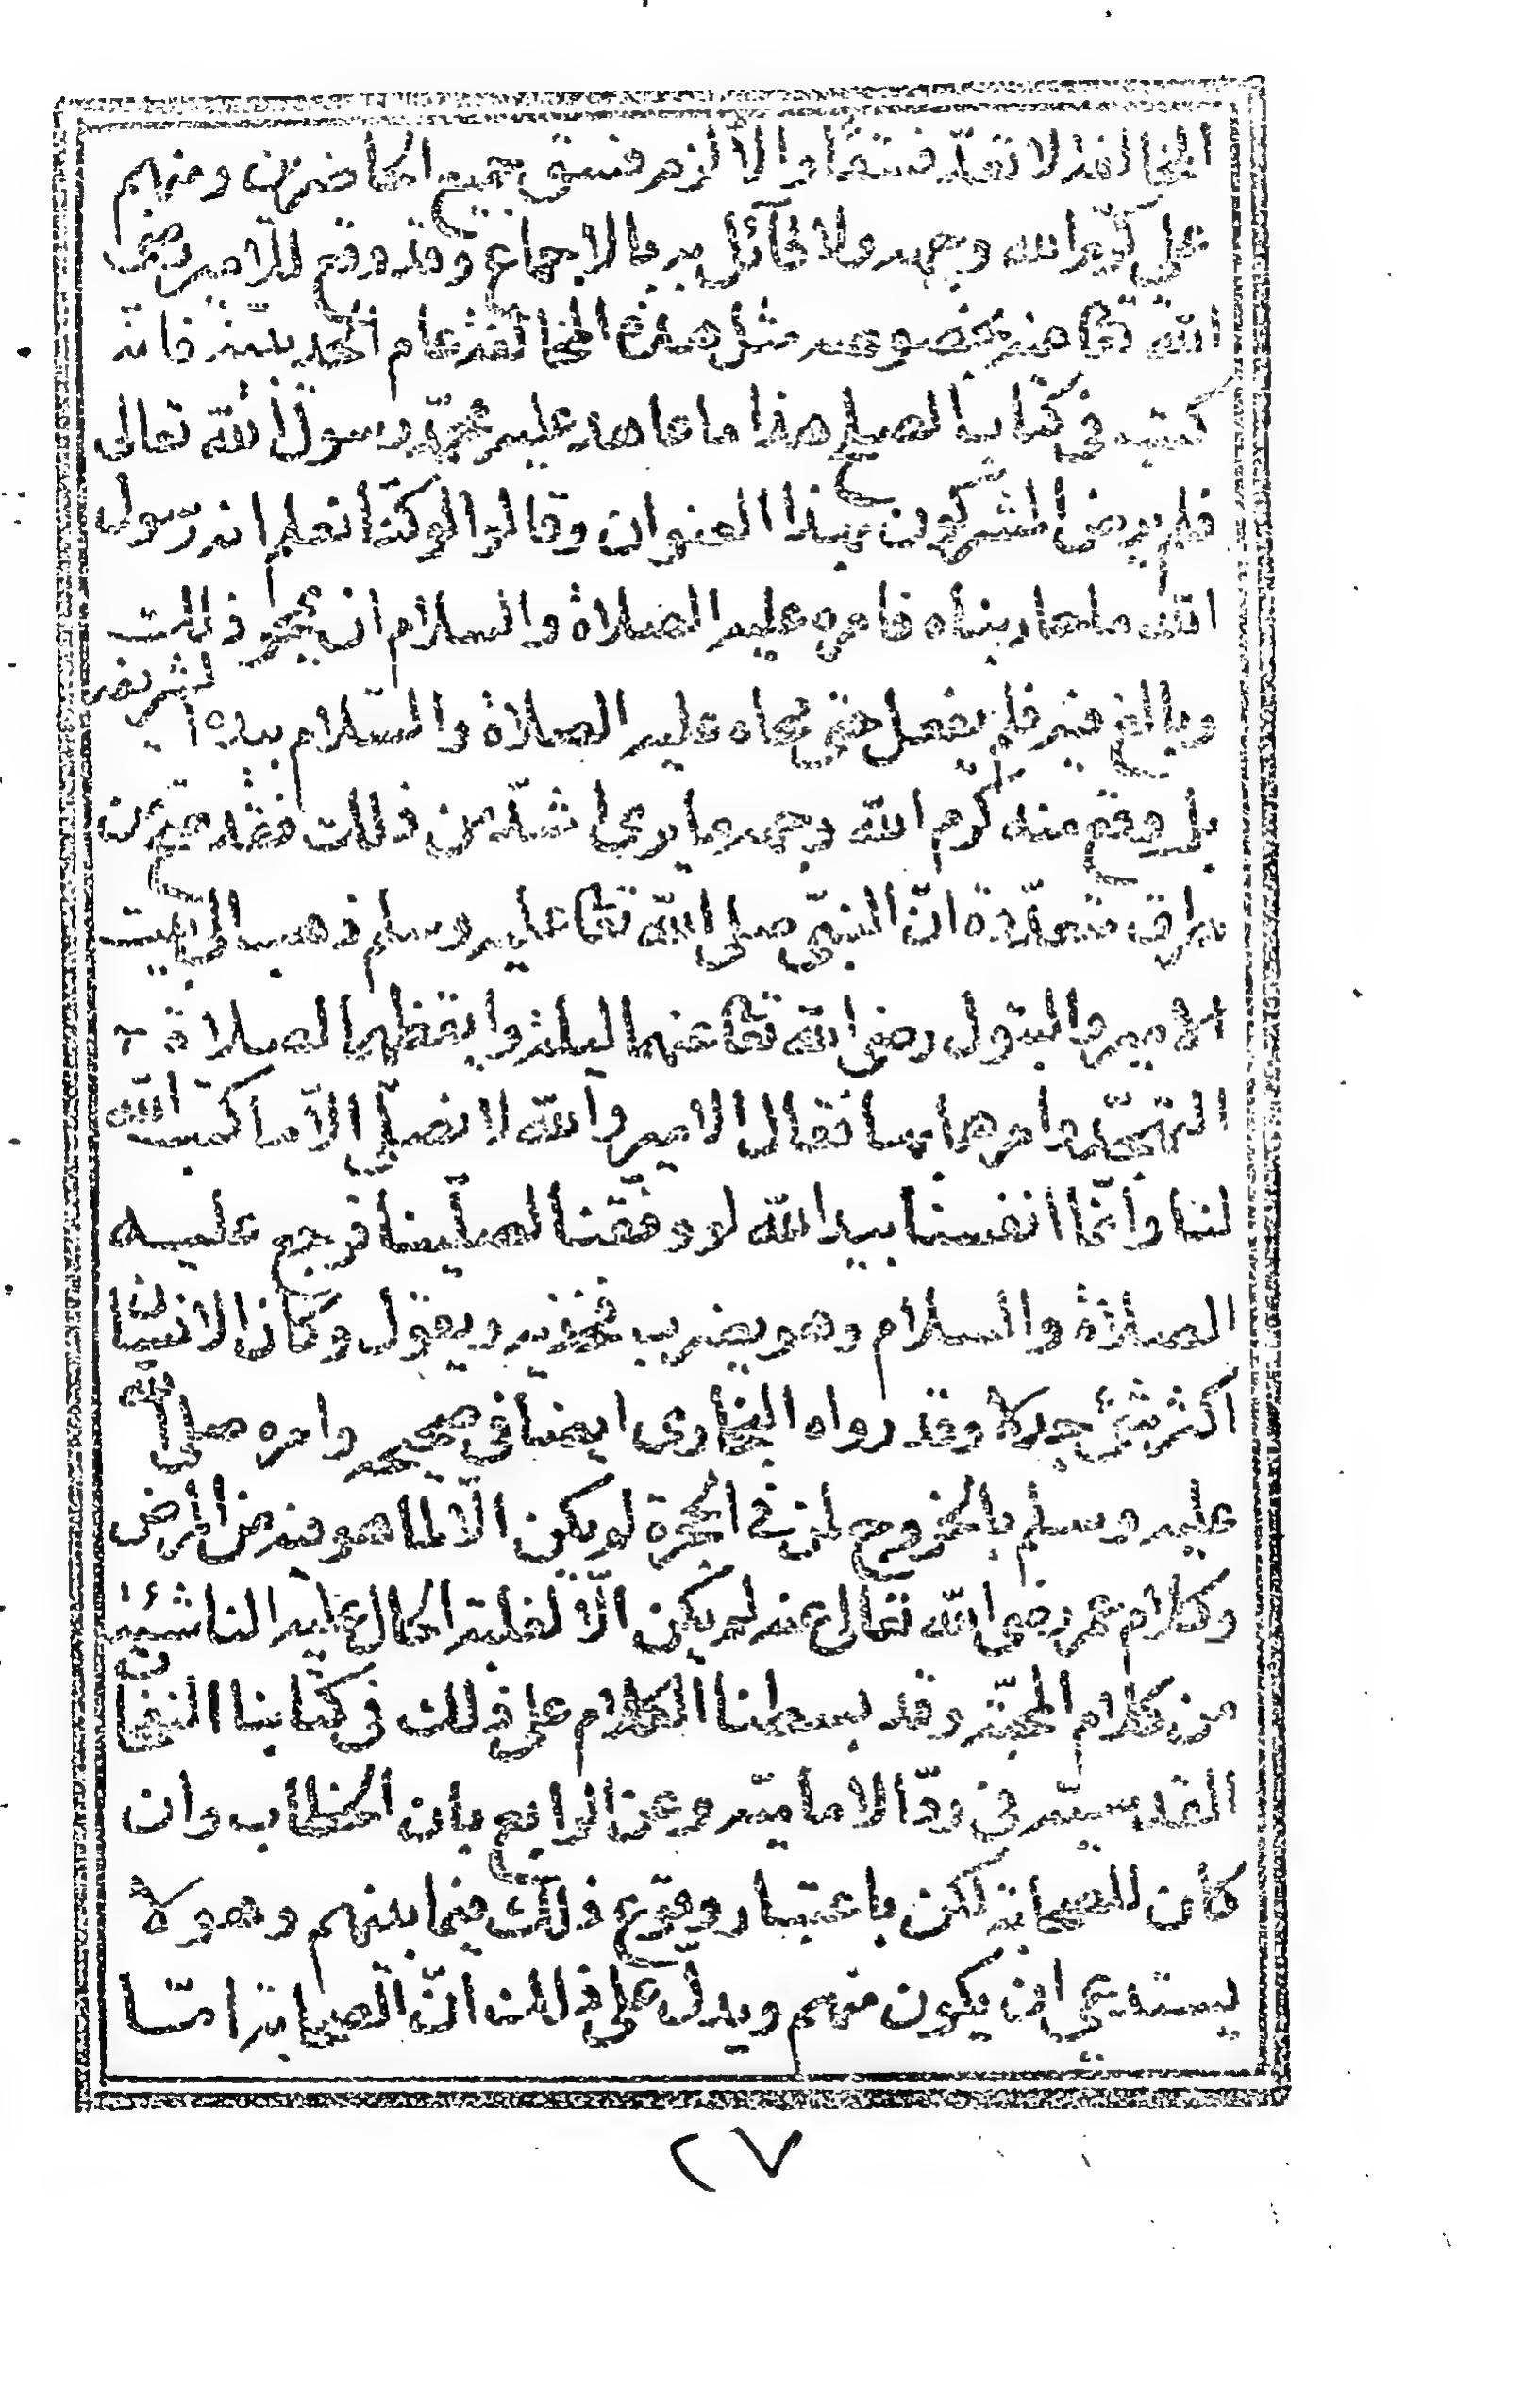 المخالفة لا تعدّ فسقا والّا لزم فسق جميع الحاضرين ومنهم
علي كرّم الله وجهه ولا قائل به بالاجماع وقد وقع للامير رضى
الله تعا عنه بخصوصه مثل هذه المخالفة عام الحديبية فانّه
كتب في كتاب الصلح هذا ما عاهد عليه محمّد رسول الله تعالى
فلم يرض المشركون بهذا العنوان وقالوا لو كنّا نعلم انه رسول
الله ما حاربناه فامره عليه الصلاة والسلام ان يمحو ذلك
وبالغ فيه فلم يفعل حتى محاه عليه الصلاة والسّلام بيده الشريفة
بل وقع منه كرّم الله وجهه ما يرى اشدّ من ذلك فقد صحّ من
طرق متعدّدة انّ النبىّ صلى الله تعا عليه وسلم ذهب الى بيت
الامير والبتول رضى الله تعا عنهما ليلة وايقظهما لصلاة
التهجّد وامرهما بها فقال الامير والله لا نصلّي الّا ما كتب الله
لنا وانّما انفسنا بيد الله لو وفّقنا لصلّينا فرجع عليه
الصلاة والسلام وهو يضرب فخذيه ويقول وكان الانسان
اكثر شئ جدلا وقد رواه البخارى ايضا في صحيحه وامره صلى الله
عليه وسلم بالخروج لمن في الحجرة لم يكن الّا لما هو فيه من المرض
وكلام عمر رضى الله تعالى عنه لم يكن الّا لغلبة الحال عليه الناشئة
من كلام المحبّة وقد بسطنا الكلام على ذلك في كتابنا النفحات
القدسيّة في ردّ الاماميّة وعن الرابع بان الخطاب وان
كان للصحابة لكن باعتبار وقوع ذلك فيما بينهم وهو لا
يستدعى ان يكون منهم ويدلّ على ذلك انّ الصحابة امّا
٢٧